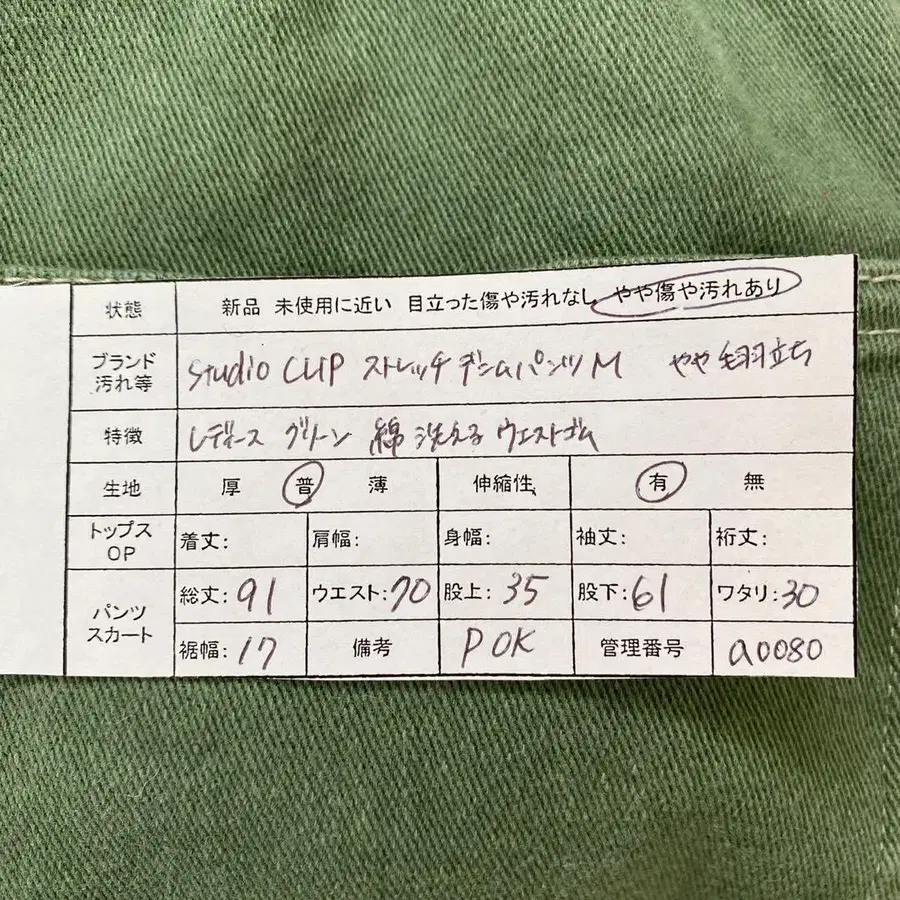 状態 新品 未使用に近い 目立った傷や汚れなし やや傷や汚れあり
ブランド 汚れ等 Studio CLIP ストレッチデニムパンツ M やや毛羽立ち
特徴 レディース グリーン 綿 洗える ウエストゴム
生地 厚 普 薄 伸縮性 有 無
トップス OP 着丈: 肩幅: 身幅: 袖丈: 裄丈:
パンツ スカート 総丈: 91 ウエスト: 70 股上: 35 股下: 61 ワタリ: 30
裾幅: 17 備考 P OK 管理番号 a0080